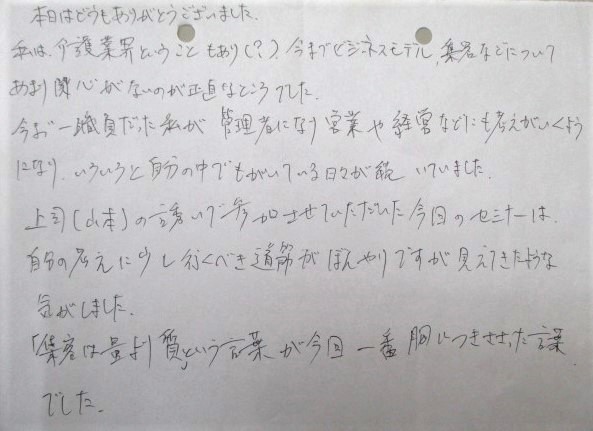 本日はどうもありがとうございました.
私は、介護業界ということもあり(?)、今までビジネスモデル、集客などについて
あまり関心がないのが正直なところでした.
今まで一職員だった私が 管理者になり営業や経営などにも考えがいくよう
になり、いろいろと自分の中でもがいている日々が続いていました.
上司(山本)の誘いで参加させていただいた今回のセミナーは、
自分の考えに少し行くべき道筋がぼんやりですが見えてきたような
気がしました.
「集客は量より質」という言葉が今回一番胸につきささった言葉
でした.